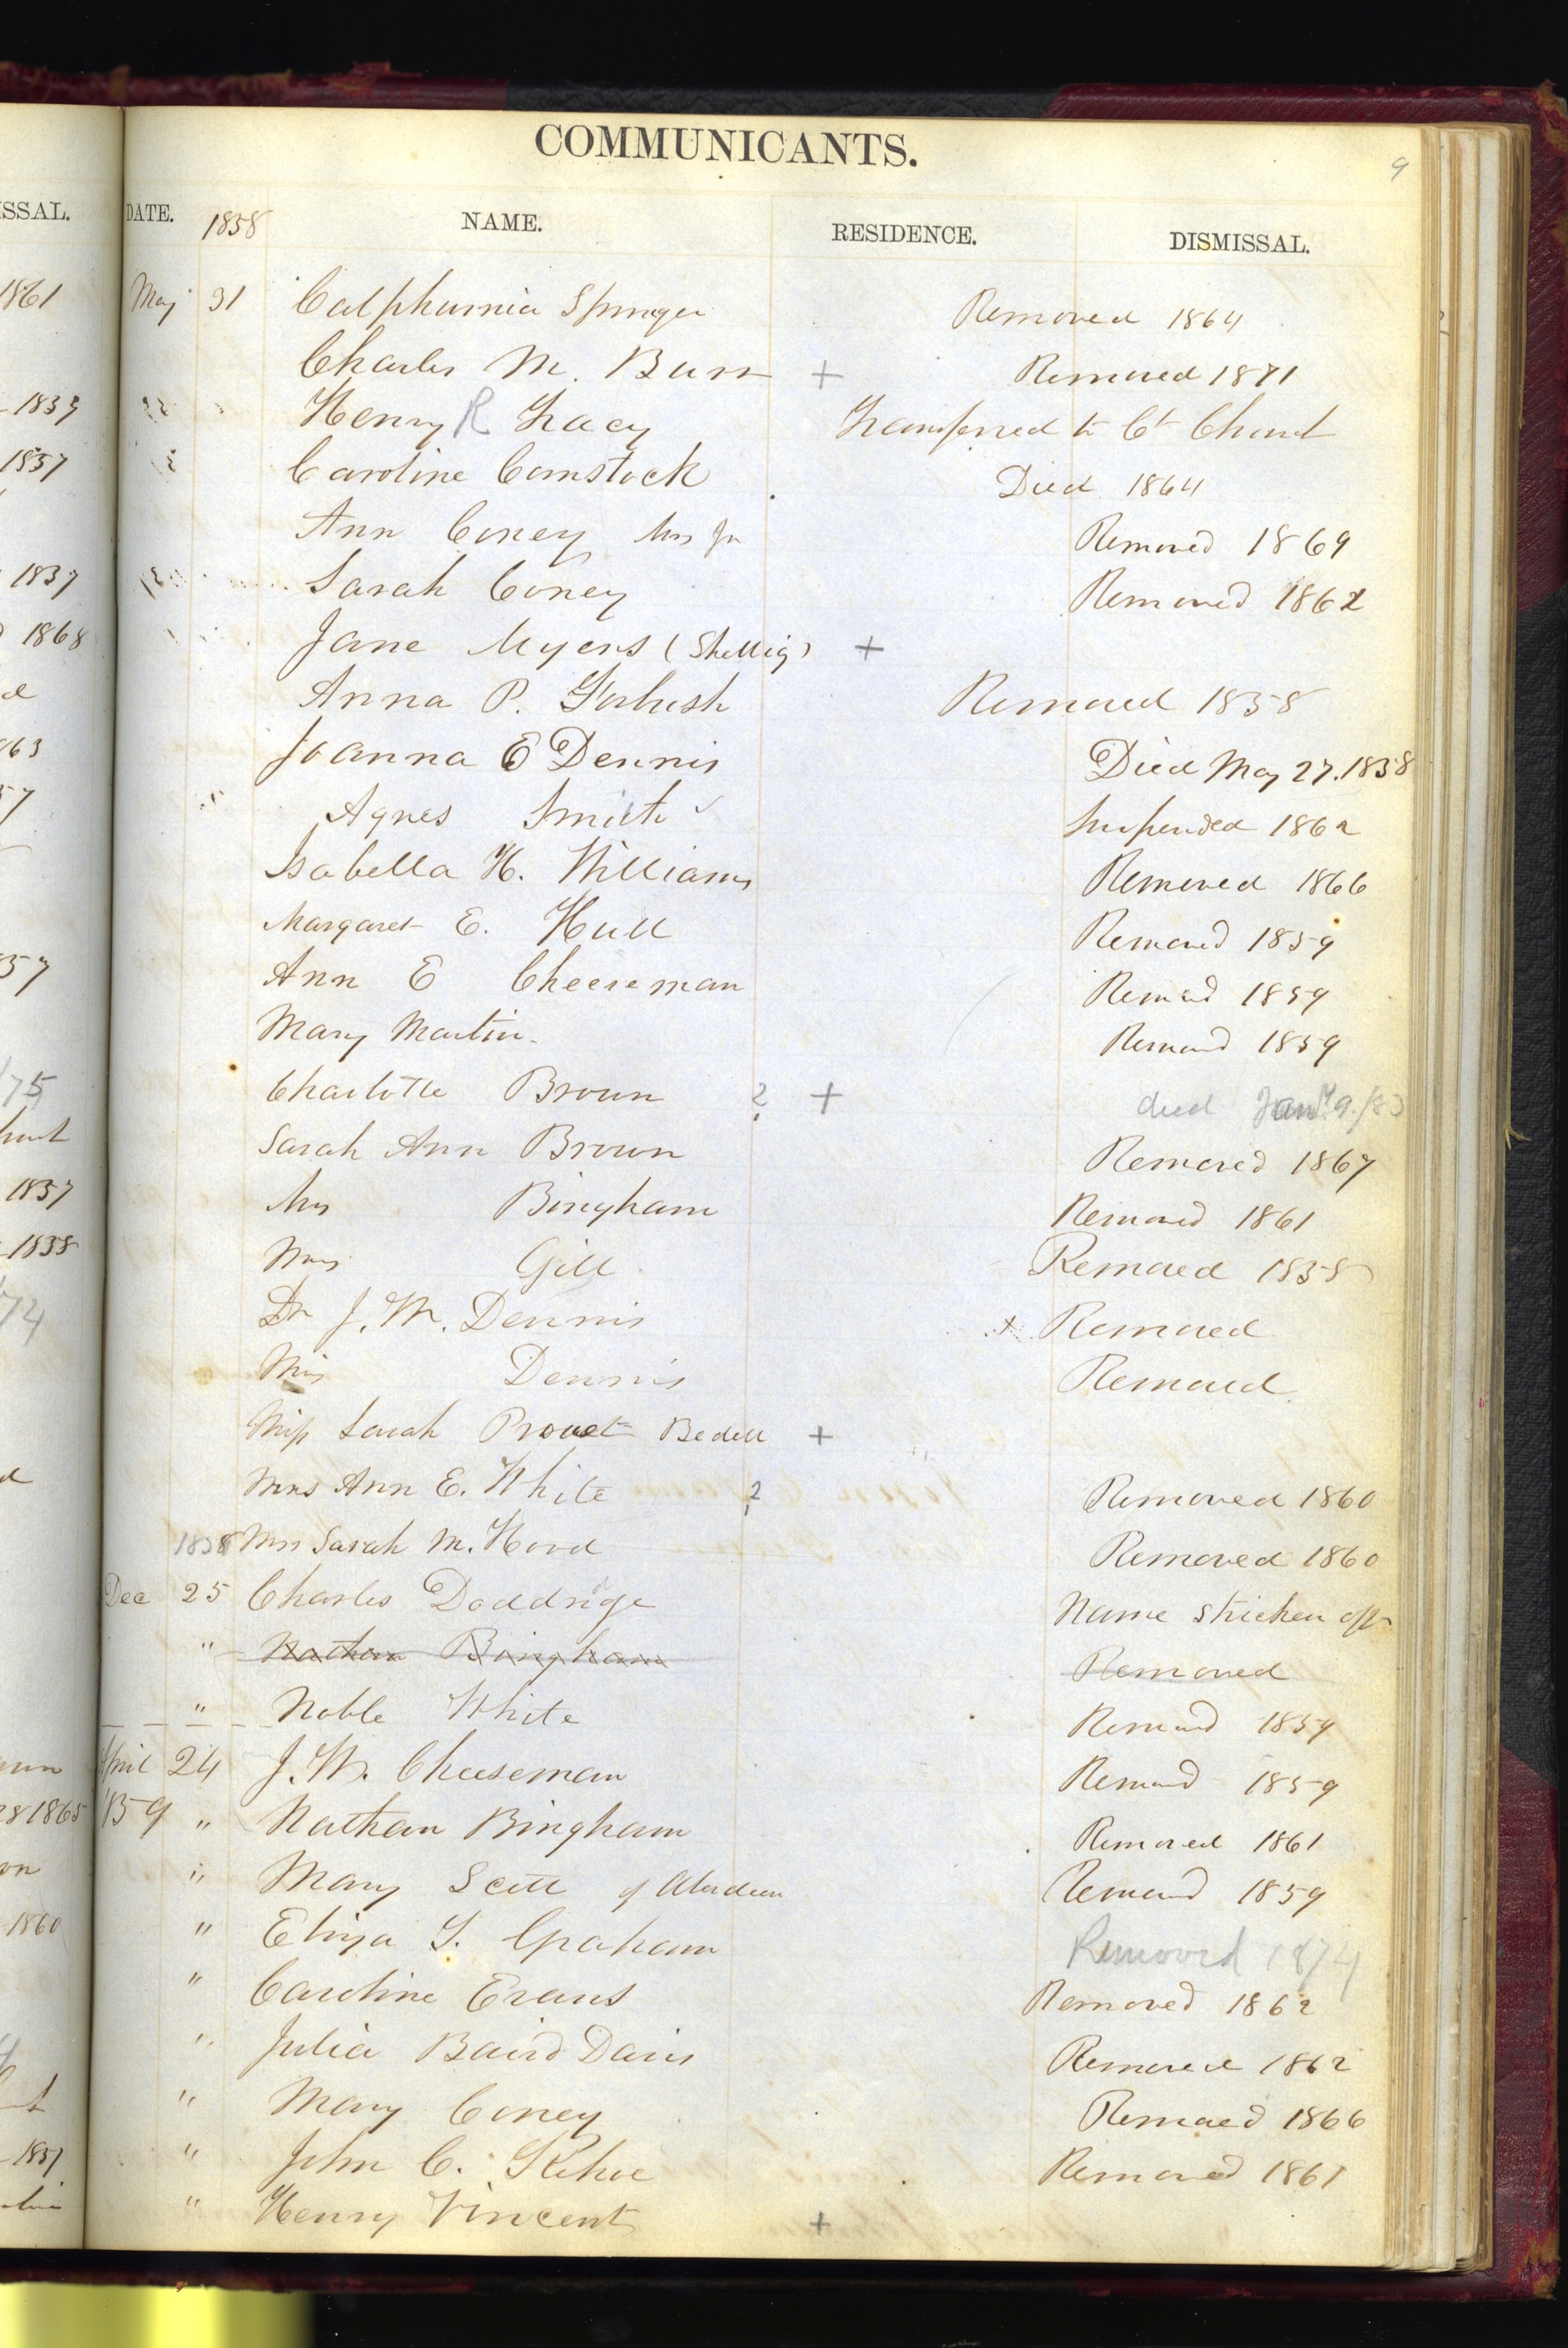 COMMUNICANTS.
9
DATE. 1858 NAME. RESIDENCE. DISMISSAL.
May 31 Calphurnia Springer Removed 1864
Charles M. Burr + Removed 1871
Henry R Tracy Transferred to Ct Church
Caroline Comstock Died 1864
Ann Coney Mrs Jn Removed 1869
Sarah Coney Removed 1862
Jane Myers ( ) +
Anna P. Removed 1858
Joanna E Dennis Died May 27. 1858
Agnes Smith Suspended 1862
Isabella H. Williams Removed 1866
Margaret E. Hull Removed 1859
Ann E Cheeseman Removed 1859
Mary Martin. Removed 1859
Charlotte Brown ? + died Jany 9./83
Sarah Ann Brown Removed 1867
Mrs Bingham Removed 1861
Mrs Gill Removed 1858
Dr J. W. Dennis Removed
Mrs Dennis Removed
Miss Sarah Provost Bedell +
Mrs Ann E. White ? Removed 1860
1858 Mrs Sarah M. Hood Removed 1860
Dec 25 Charles Doddridge Name stricken off
" Nathan Bingham Removed
" Noble White Removed 1859
April 24 J. W. Cheeseman Removed 1859
1859 " Nathan Bingham Removed 1861
" Mary Scott of Aberdeen Removed 1859
" Eliza T. Graham Removed 1874
" Caroline Evans Removed 1862
" Julia Baird Davis Removed 1862
" Mary Coney Removed 1866
" John C. Kehoe Removed 1861
" Henry Vincent +